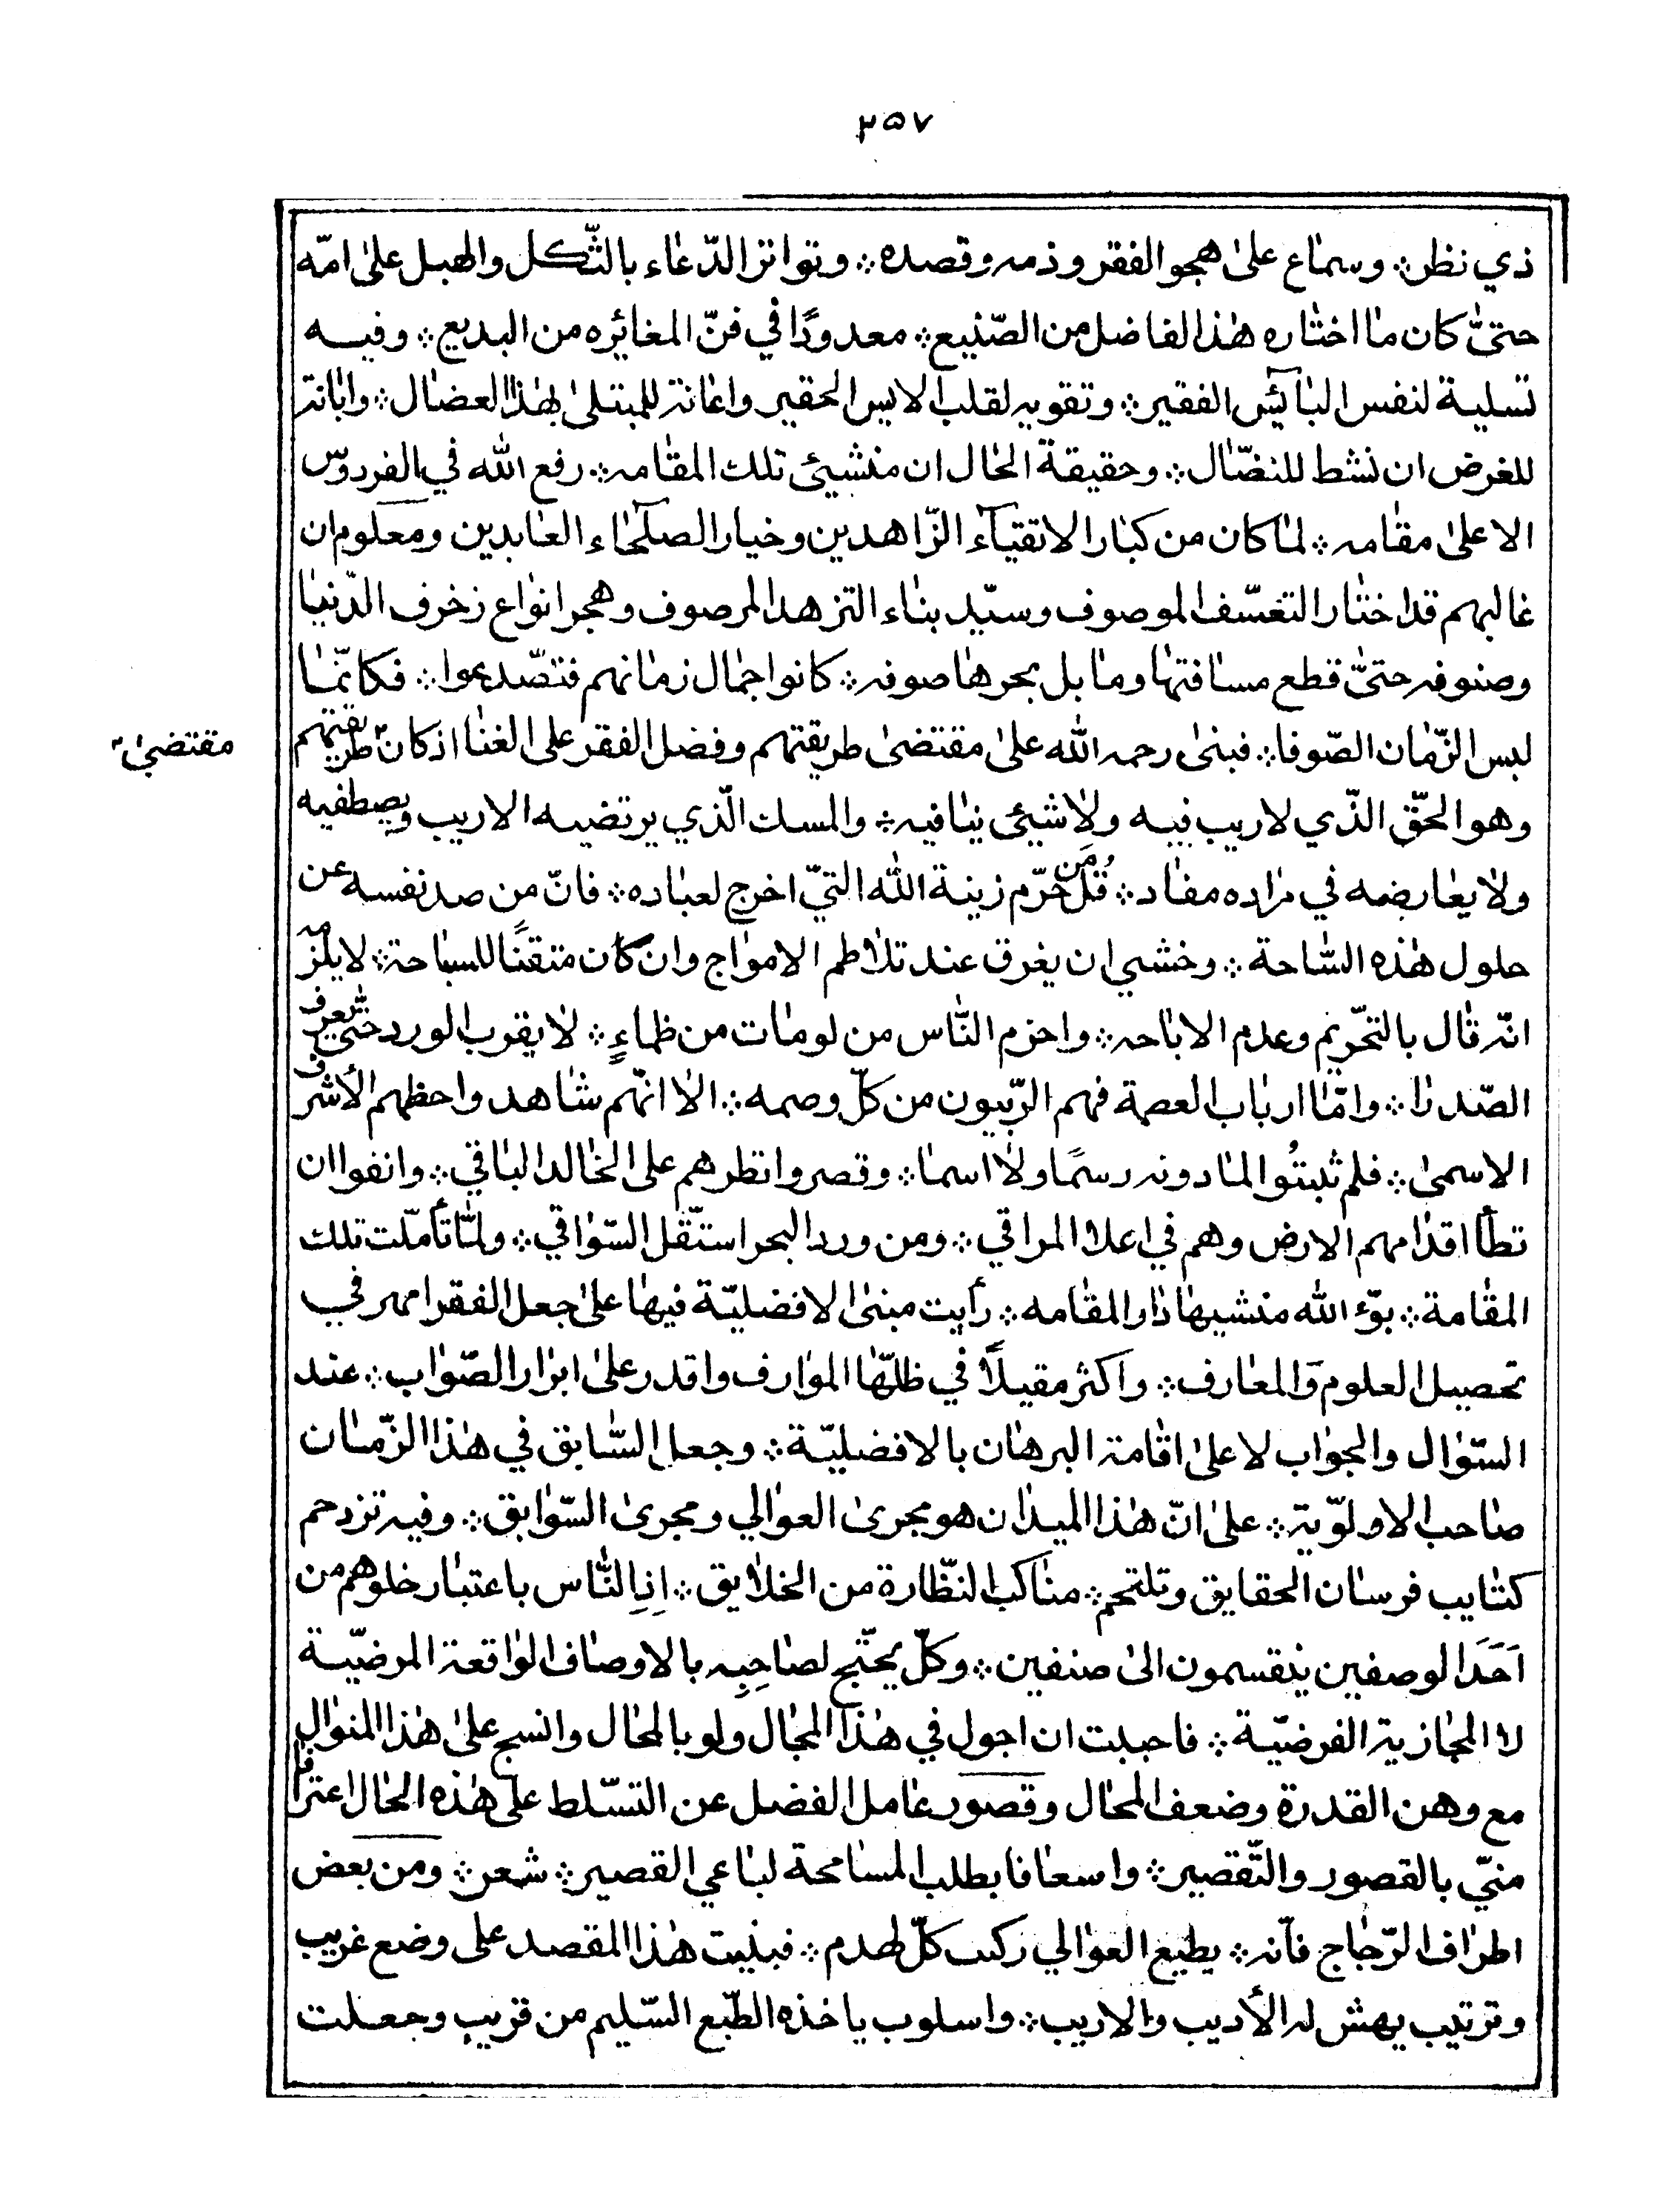 ٢٥٧
ذي نظر؞ وسماع على هجو الفقر وذمه وقصده؞ وتواتر الدّعاء بالثّكل والهبل على امّه
حتىّ كان ما اختاره هذا الفاضل من الصّنيع؞ معدودًا في فنّ المغائره من البديع؞ وفيه
تسلية لنفس البآئيس الفقير؞ وتقويه لقلب الايس الحقير واعانة للمبتلى بهذا العضال؞ وابانة
للغرض ان نشط للنضّال؞ وحقيقة الحال ان منشيئ تلك المقامه؞ رفع الله في الفردوس
الاعلى مقامه؞ لما كان من كبار الاتقيآء الزّاهدين وخيار الصلحآء العابدين ومعلوم ان
غالبهم قد اختار التعسّف الموصوف وسيّد بناء التزهد المرصوف وهجر انواع زخرف الدّنيا
وصنوفه حتىّ قطع مسافتها وما بل بحرها صوفه؞ كانوا جمال زمانهم فتصّدعوا؞ فكانّما
لبس الزّمان الصّوفا؞ فبنى رحمه الله على مقتضى طريقتهم وفضل الفقر على الغنا اذ كان طريقتهم
مقتضى
وهو الحقّ الذّي لاريب فيه ولا شيئ ينافيه؞ والمسك الّذي يرتضيه الاريب ويصطفيه
ولا يعارضه في مراده مفاد؞ قُل مَن حرّم زينة الله التيّ اخرج لعباده؞ فانّ من صد نفسه عن
حلول هذه السّاحة؞ وخشي ان يغرق عند تلاطم الامواج وان كان متقنًا للسباحة؞ لا يلزمه
انّه قال بالتحّريم وعدم الاباحه؞ واحزم النّاس من لو مات من ظماءٍ؞ لا يقرب الورد حتّى يعرف
الصّدرا؞ وامّا ارباب العصمة فهم الرّبيون من كلّ وصمه؞ الا انّهم شاهد واحظهم الأشرف
الاسمى؞ فلم ثبتُوا لما دونه رسمًا ولا اسما؞ وقصروا نظرهم على الخالد الباقي؞ وانفوا ان
تطأ اقدامهم الارض وهم في اعلا المراقي؞ ومن ورد البحر استّقل السّواقي؞ ولمّا تأمّلت تلك
المقامة؞ بوّء الله منشيها دار المقامه؞ رأيت مبنى الافضليّة فيها على جعل الفقر امهر في
تحصيل العلوم والمعارف؞ واكثر مقيلًا في ظلّها الوارف واقدر على ابراز الصّواب؞ عند
السّوال والجواب لا على اقامة البرهان بالافضليّة؞ وجعل السّابق في هذا الزّمان
صاحب الاولوّية؞ على انّ هذا الميدان هو مجرى العوالي ومجرى السّوابق؞ وفيه تزدحم
كتايب فرسان الحقايق وتلتحم؞ مناكب النظّارة من الخلايق؞ اذِ النّاس باعتبار خلوهم من
اَحَد الوصفين ينقسمون الى صنفين؞ وكلّ يحتّج لصاحِبِه بالاوصاف الواقعة المرضيّة
لا المجازية الفرضيّة؞ فاحببت ان اجول في هذا المجال ولو بالمحال وانسج على هذا المنوال
مع وهن القدرة وضعف المحال وقصور عامل الفضل عن التسّلط على هذه الحال اعترافا
منيّ بالقصور والتّقصير؞ واسعافا بطلب المسامحة لباعي القصير؞ شعر؞ ومن بعض
اطراف الزّجاج فأنّه؞ يطيع العوالي ركبت كلّ لهدم؞ فبنيت هذا المقصد على وضع غريب
وترتيب يهش له الأديب والاريب؞ واسلوب ياخذه الطّبع السّليم من قريب وجعلت